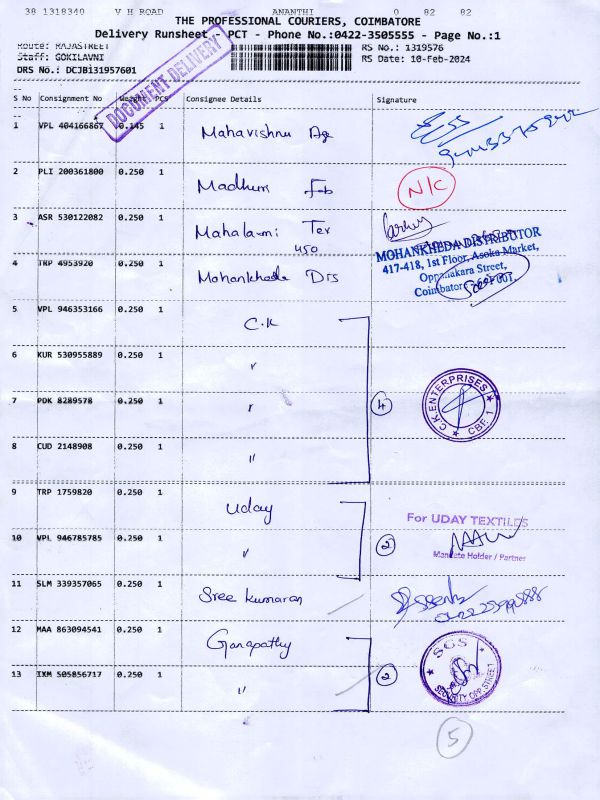 38 1318340 V H ROAD ANANTHI 0 82 82
THE PROFESSIONAL COURIERS, COIMBATORE
Delivery Runsheet - PCT - Phone No.:0422-3505555 - Page No.:1
Route: RAJASTREET
RS No.: 1319576
Staff: GOKILAVNI
RS Date: 10-Feb-2024
DRS No.: DCJBi31957601
DOCUMENT DELIVERY
S No Consignment No Weight PCS Consignee Details Signature
1 VPL 404166867 0.145 1 Mahavishnu Ag
2 PLI 200361800 0.250 1 Madhuri Fab N/C
3 ASR 530122082 0.250 1 Mahalaxmi Tex
450
4 TRP 4953920 0.250 1 Mohankheda Drs
MOHANKHEDA DISTRIBUTOR
417-418, 1st Floor, Asoka Market,
Oppanakara Street,
5 VPL 946353166 0.250 1 C.K
6 KUR 530955889 0.250 1 "
7 PDK 8289578 0.250 1 " 4
C.K.ENTERPRISES
CBE.1
8 CUD 2148908 0.250 1 "
9 TRP 1759820 0.250 1 Uday
For UDAY TEXTILES
10 VPL 946785785 0.250 1 " 2
Mandate Holder / Partner
11 SLM 339357065 0.250 1 Sree Kumaran
12 MAA 863094541 0.250 1 Ganapathy
13 IXM 505856717 0.250 1 " 2
SGS
SECURITY OPP. STREET
5